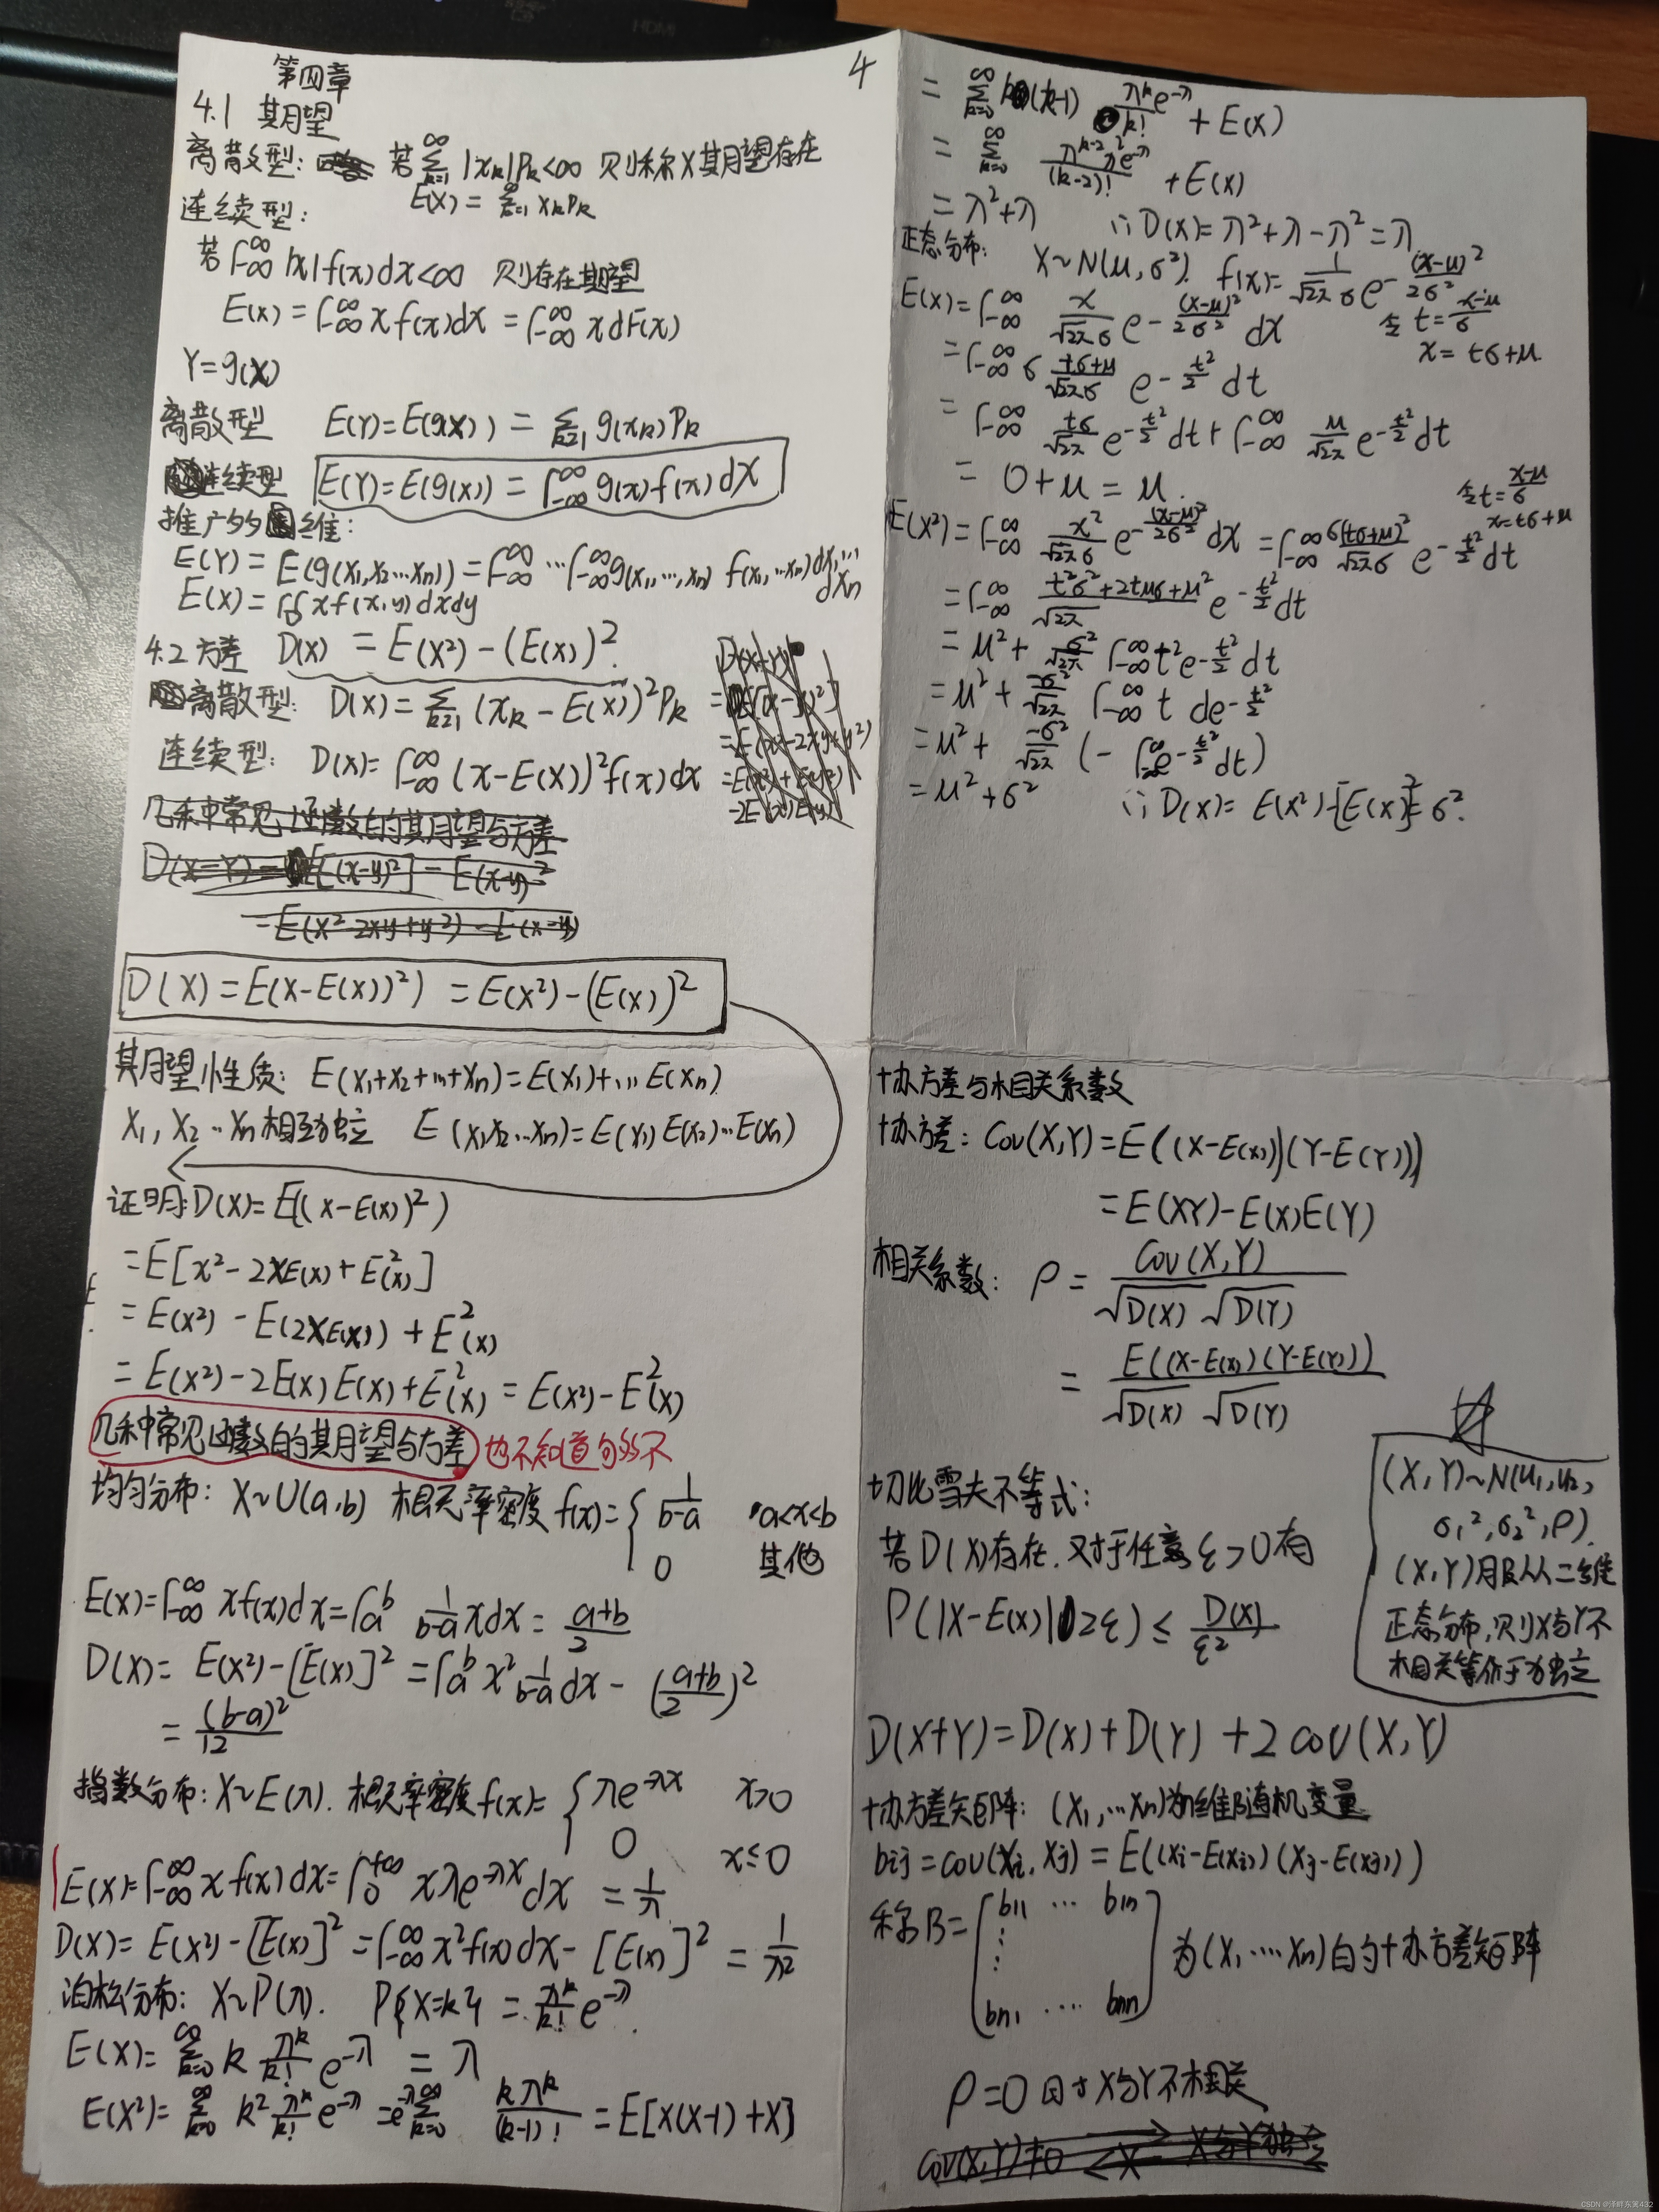 第四章
4
4.1 期望
离散型: 若∑_{k=1}^∞ |x_k|P_k<∞ 则称X期望存在
E(X)=∑_{k=1}^∞ x_k P_k
连续型:
若∫_{-∞}^∞ |x|f(x)dx<∞ 则存在期望
E(x)=∫_{-∞}^∞ x f(x)dx=∫_{-∞}^∞ x dF(x)
Y=g(X)
离散型 E(Y)=E(g(X))=∑_{k=1} g(x_k)P_k
连续型 E(Y)=E(g(x))=∫_{-∞}^∞ g(x)f(x)dx
推广多维:
E(Y)=E(g(x₁,x₂…xn))=∫_{-∞}^∞…∫_{-∞}^∞ g(x₁,…,xn) f(x₁,…xn)dx₁…dxn
E(X)=∬xf(x,y)dxdy
4.2 方差 D(X)=E(X²)-(E(X))²
离散型: D(X)=∑_{k=1}(x_k-E(X))²P_k
连续型: D(X)=∫_{-∞}^∞(x-E(X))²f(x)dx
几种常见函数的期望与方差
D(X)=E(X-E(X))²)=E(X²)-(E(X))²
期望性质: E(X₁+X₂+…+Xn)=E(X₁)+…E(Xn)
X₁,X₂…Xn相互独立 E(X₁X₂…Xn)=E(X₁)E(X₂)…E(Xn)
证明:D(X)=E((X-E(X))²)
=E[x²-2XE(X)+E²(x)]
=E(X²)-E(2XE(X))+E²(x)
=E(X²)-2E(X)E(X)+E²(X)=E(X²)-E²(X)
几种常见函数的期望与方差 也不知道匀够不
均匀分布: X~U(a,b) 概率密度f(x)={1/(b-a) a<x<b
0 其他
E(X)=∫_{-∞}^∞ xf(x)dx=∫_a^b 1/(b-a) xdx=(a+b)/2
D(X)=E(X²)-[E(X)]²=∫_a^b x² 1/(b-a) dx-((a+b)/2)²
=(b-a)²/12
指数分布: X~E(λ). 概率密度f(x)={λe^{-λx} x>0
0 x≤0
E(X)=∫_{-∞}^∞ x f(x)dx=∫_0^{+∞} xλe^{-λx}dx=1/λ
D(X)=E(X²)-[E(X)]²=∫_{-∞}^∞ x²f(x)dx-[E(x)]²=1/λ²
泊松分布: X~P(λ). P{X=k}=λ^k/k! e^{-λ}
E(X)=∑_{k=0}^∞ k λ^k/k! e^{-λ}=λ
E(X²)=∑_{k=0}^∞ k² λ^k/k! e^{-λ}=e^{-λ}∑_{k=0}^∞ kλ^k/(k-1)!=E[X(X-1)+X]
=∑_{k=0}^∞ k(k-1) λ^k e^{-λ}/k!+E(X)
=∑_{k=0}^∞ λ^{k-2}λ²e^{-λ}/(k-2)!+E(X)
=λ²+λ ∴D(X)=λ²+λ-λ²=λ
正态分布: X~N(μ,σ²). f(x)=1/(√2π σ) e^{-(x-μ)²/2σ²}
E(X)=∫_{-∞}^∞ x/(√2π σ) e^{-(x-μ)²/2σ²} dx 令t=(x-μ)/σ
x=tσ+μ
=∫_{-∞}^∞ σ (tσ+μ)/(√2π σ) e^{-t²/2} dt
=∫_{-∞}^∞ tσ/√2π e^{-t²/2}dt+∫_{-∞}^∞ μ/√2π e^{-t²/2}dt
=0+μ=μ.
令t=(x-μ)/σ
x=tσ+μ
E(X²)=∫_{-∞}^∞ x²/(√2π σ) e^{-(x-μ)²/2σ²}dx=∫_{-∞}^∞ σ(tσ+μ)²/(√2π σ) e^{-t²/2}dt
=∫_{-∞}^∞ (t²σ²+2tμσ+μ²)/√2π e^{-t²/2}dt
=μ²+σ²/√2π ∫_{-∞}^∞ t²e^{-t²/2}dt
=μ²+-σ²/√2π ∫_{-∞}^∞ t de^{-t²/2}
=μ²+-σ²/√2π (-∫_{-∞}^∞ e^{-t²/2}dt)
=μ²+σ² ∴D(X)=E(X²)-[E(X)]²=σ².
协方差与相关系数
协方差: Cov(X,Y)=E((X-E(X))(Y-E(Y)))
=E(XY)-E(X)E(Y)
相关系数: ρ=Cov(X,Y)/(√D(X) √D(Y))
=E((X-E(X))(Y-E(Y)))/(√D(X) √D(Y))
切比雪夫不等式:
若D(X)存在.对于任意ε>0有
P(|X-E(X)|≥ε)≤D(X)/ε²
(X,Y)~N(μ₁,μ₂,
σ₁²,σ₂²,ρ).
(X,Y)服从二维
正态分布,则X与Y不
相关等价于独立
D(X+Y)=D(X)+D(Y)+2cov(X,Y)
协方差矩阵: (X₁,…Xn)为n维随机变量
bij=cov(Xi,Xj)=E((Xi-E(Xi))(Xj-E(Xj)))
称B=[b11 … b1n
⋮
bn1 … bnn] 为(X₁,…Xn)的协方差矩阵
ρ=0 X与Y不相关
CSDN @泽畔东篱432